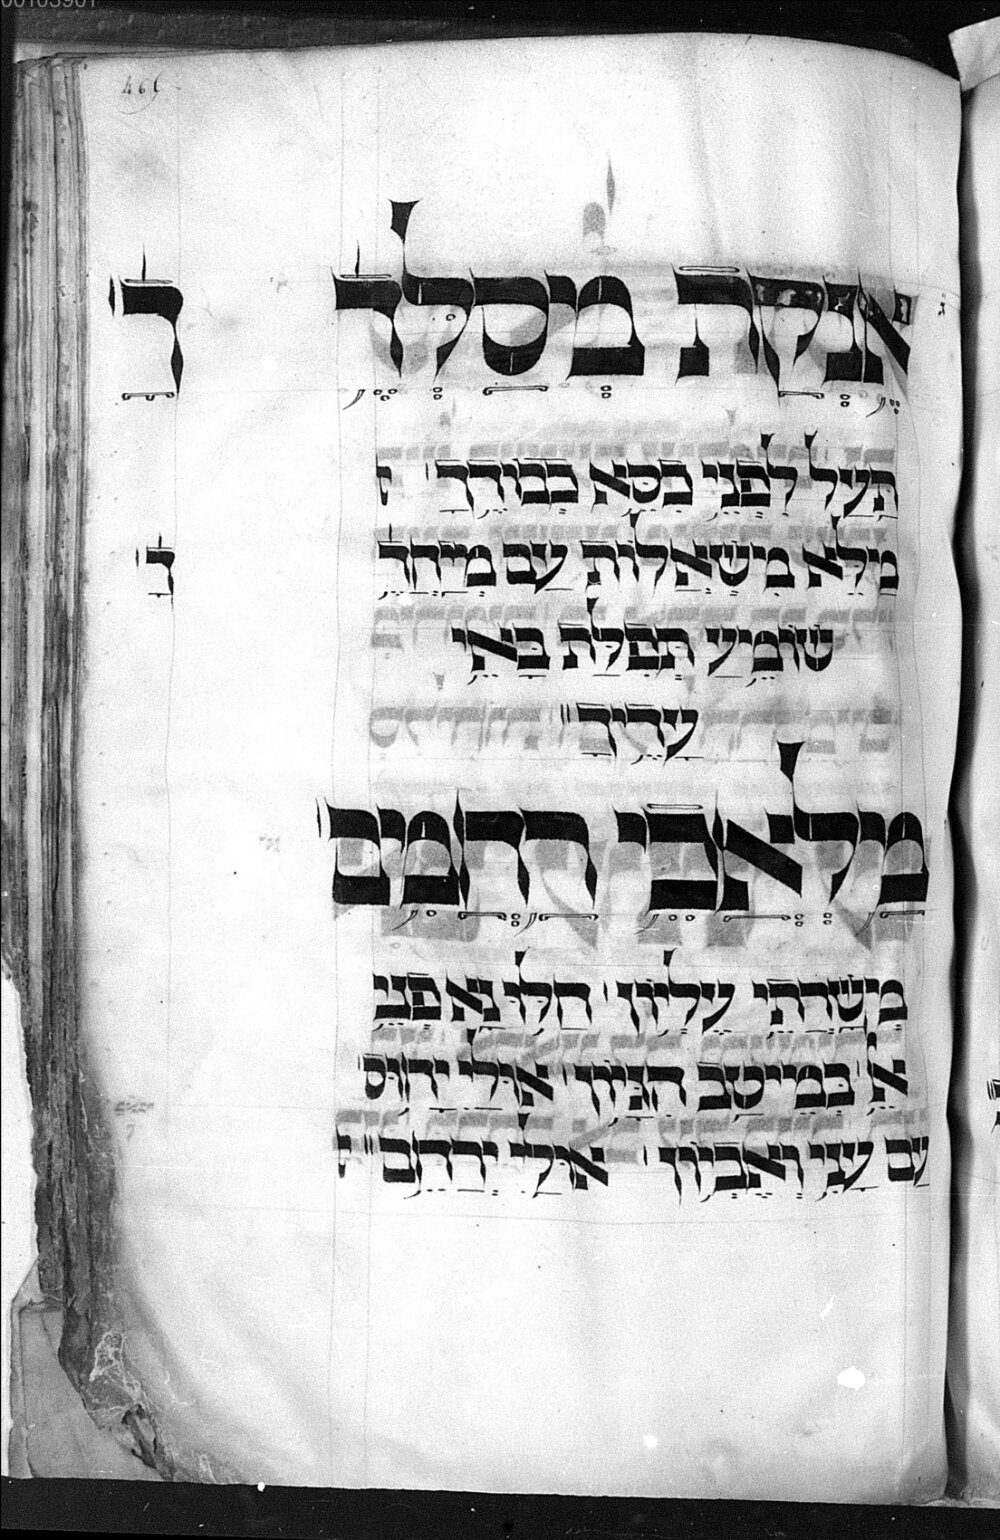 00103901
465
אֶנְקַת מְסַלְּדֶי ךָ
תַּעַל לִפְנֵי כִסֵּא כְבוֹדֶךָ
מַלֵּא מִשְׁאֲלוֹת עַם מְיַחֲדֶי
ךָ
שׁוֹמֵעַ תְּפִלַּת בָּאֵי
עָדֶיךָ׃
מַלְאֲכֵי רַחֲמִים
מְשָׁרְתֵי עֶלְיוֹן חַלּוּ נָא פְנֵי
אֵל בְּמֵיטַב הִגָּיוֹן אוּלַי יָחוֹס
עַם עָנִי וְאֶבְיוֹן אוּלַי יְרַחֵם׃